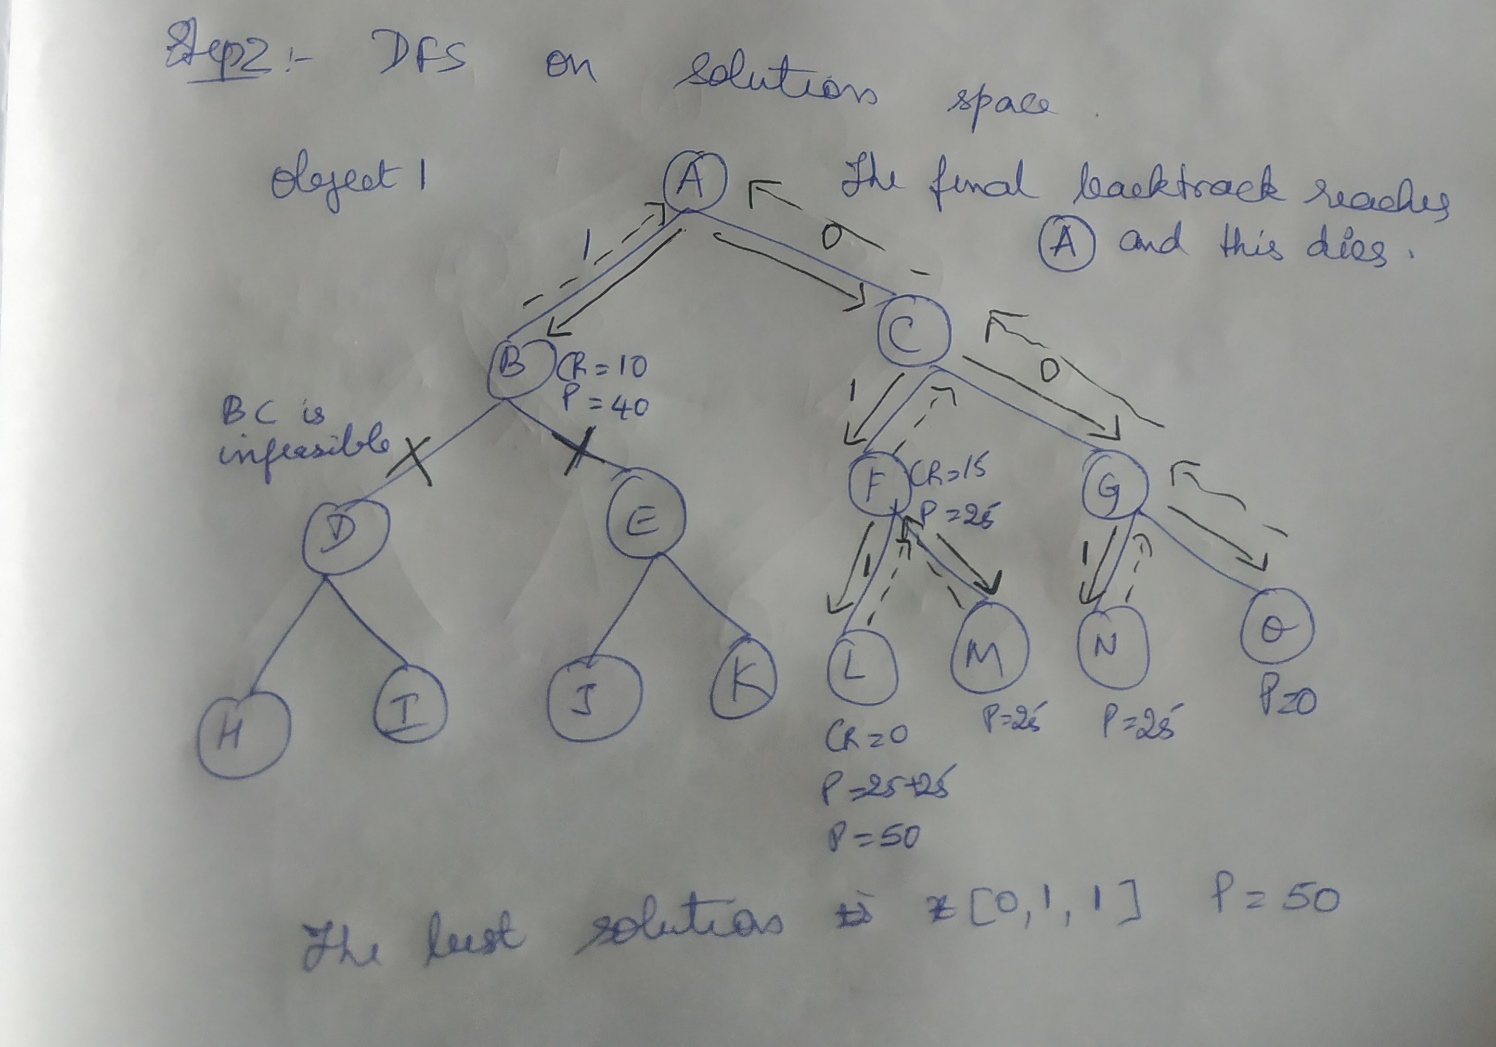 Step2:- DFS on solution space.
Object 1
A
The final backtrack reaches
A and this dies.
1
0
C
B CR=10
P=40
0
1
BC is
infeasible
D
E
F CR=15
P=25
G
1
1
H
I
J
K
L
M
N
O
CR=0
P=25
P=25
P=0
P=25+25
P=50
The best solution is x[0,1,1] P=50